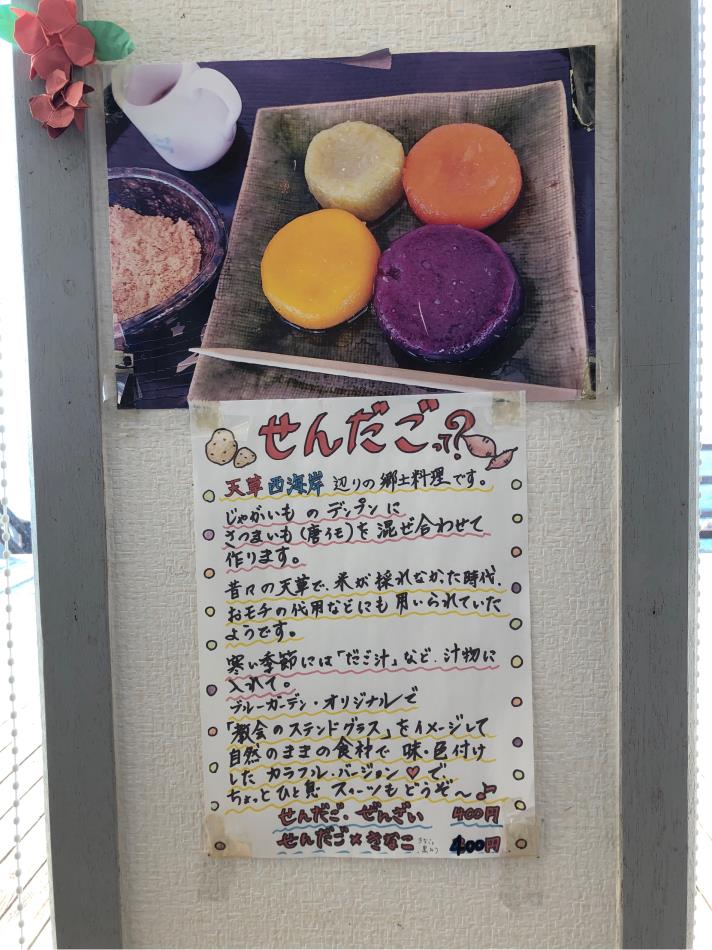 せんだごって?
天草西海岸 辺りの郷土料理です。
じゃがいもの デンプンに
さつまいも(唐イモ)を混ぜ合わせて
作ります。
昔々の天草で、米が採れなかった時代、
おモチの代用などにも用いられていた
ようです。
寒い季節には「だご汁」など、汁物に
入れて。
ブルーガーデン・オリジナルで
「教会のステンドグラス」をイメージして
自然のままの食材で 味・色付け
した カラフル・バージョン♡で、
ちょっとひと息 スイーツもどうぞ〜♪
せんだご・ぜんざい 400円
せんだご×きなこ 400円